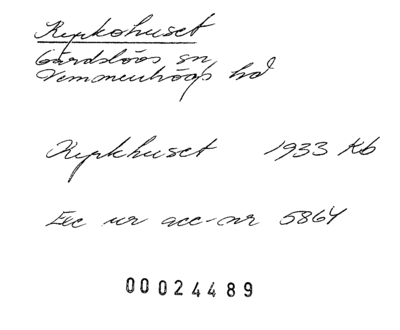 Kyrkohuset
Gärdslöös sn
Vemmenhögs hd
Kyrkhuset 1933 Kb
Exc ur acc-nr 5864
00024489